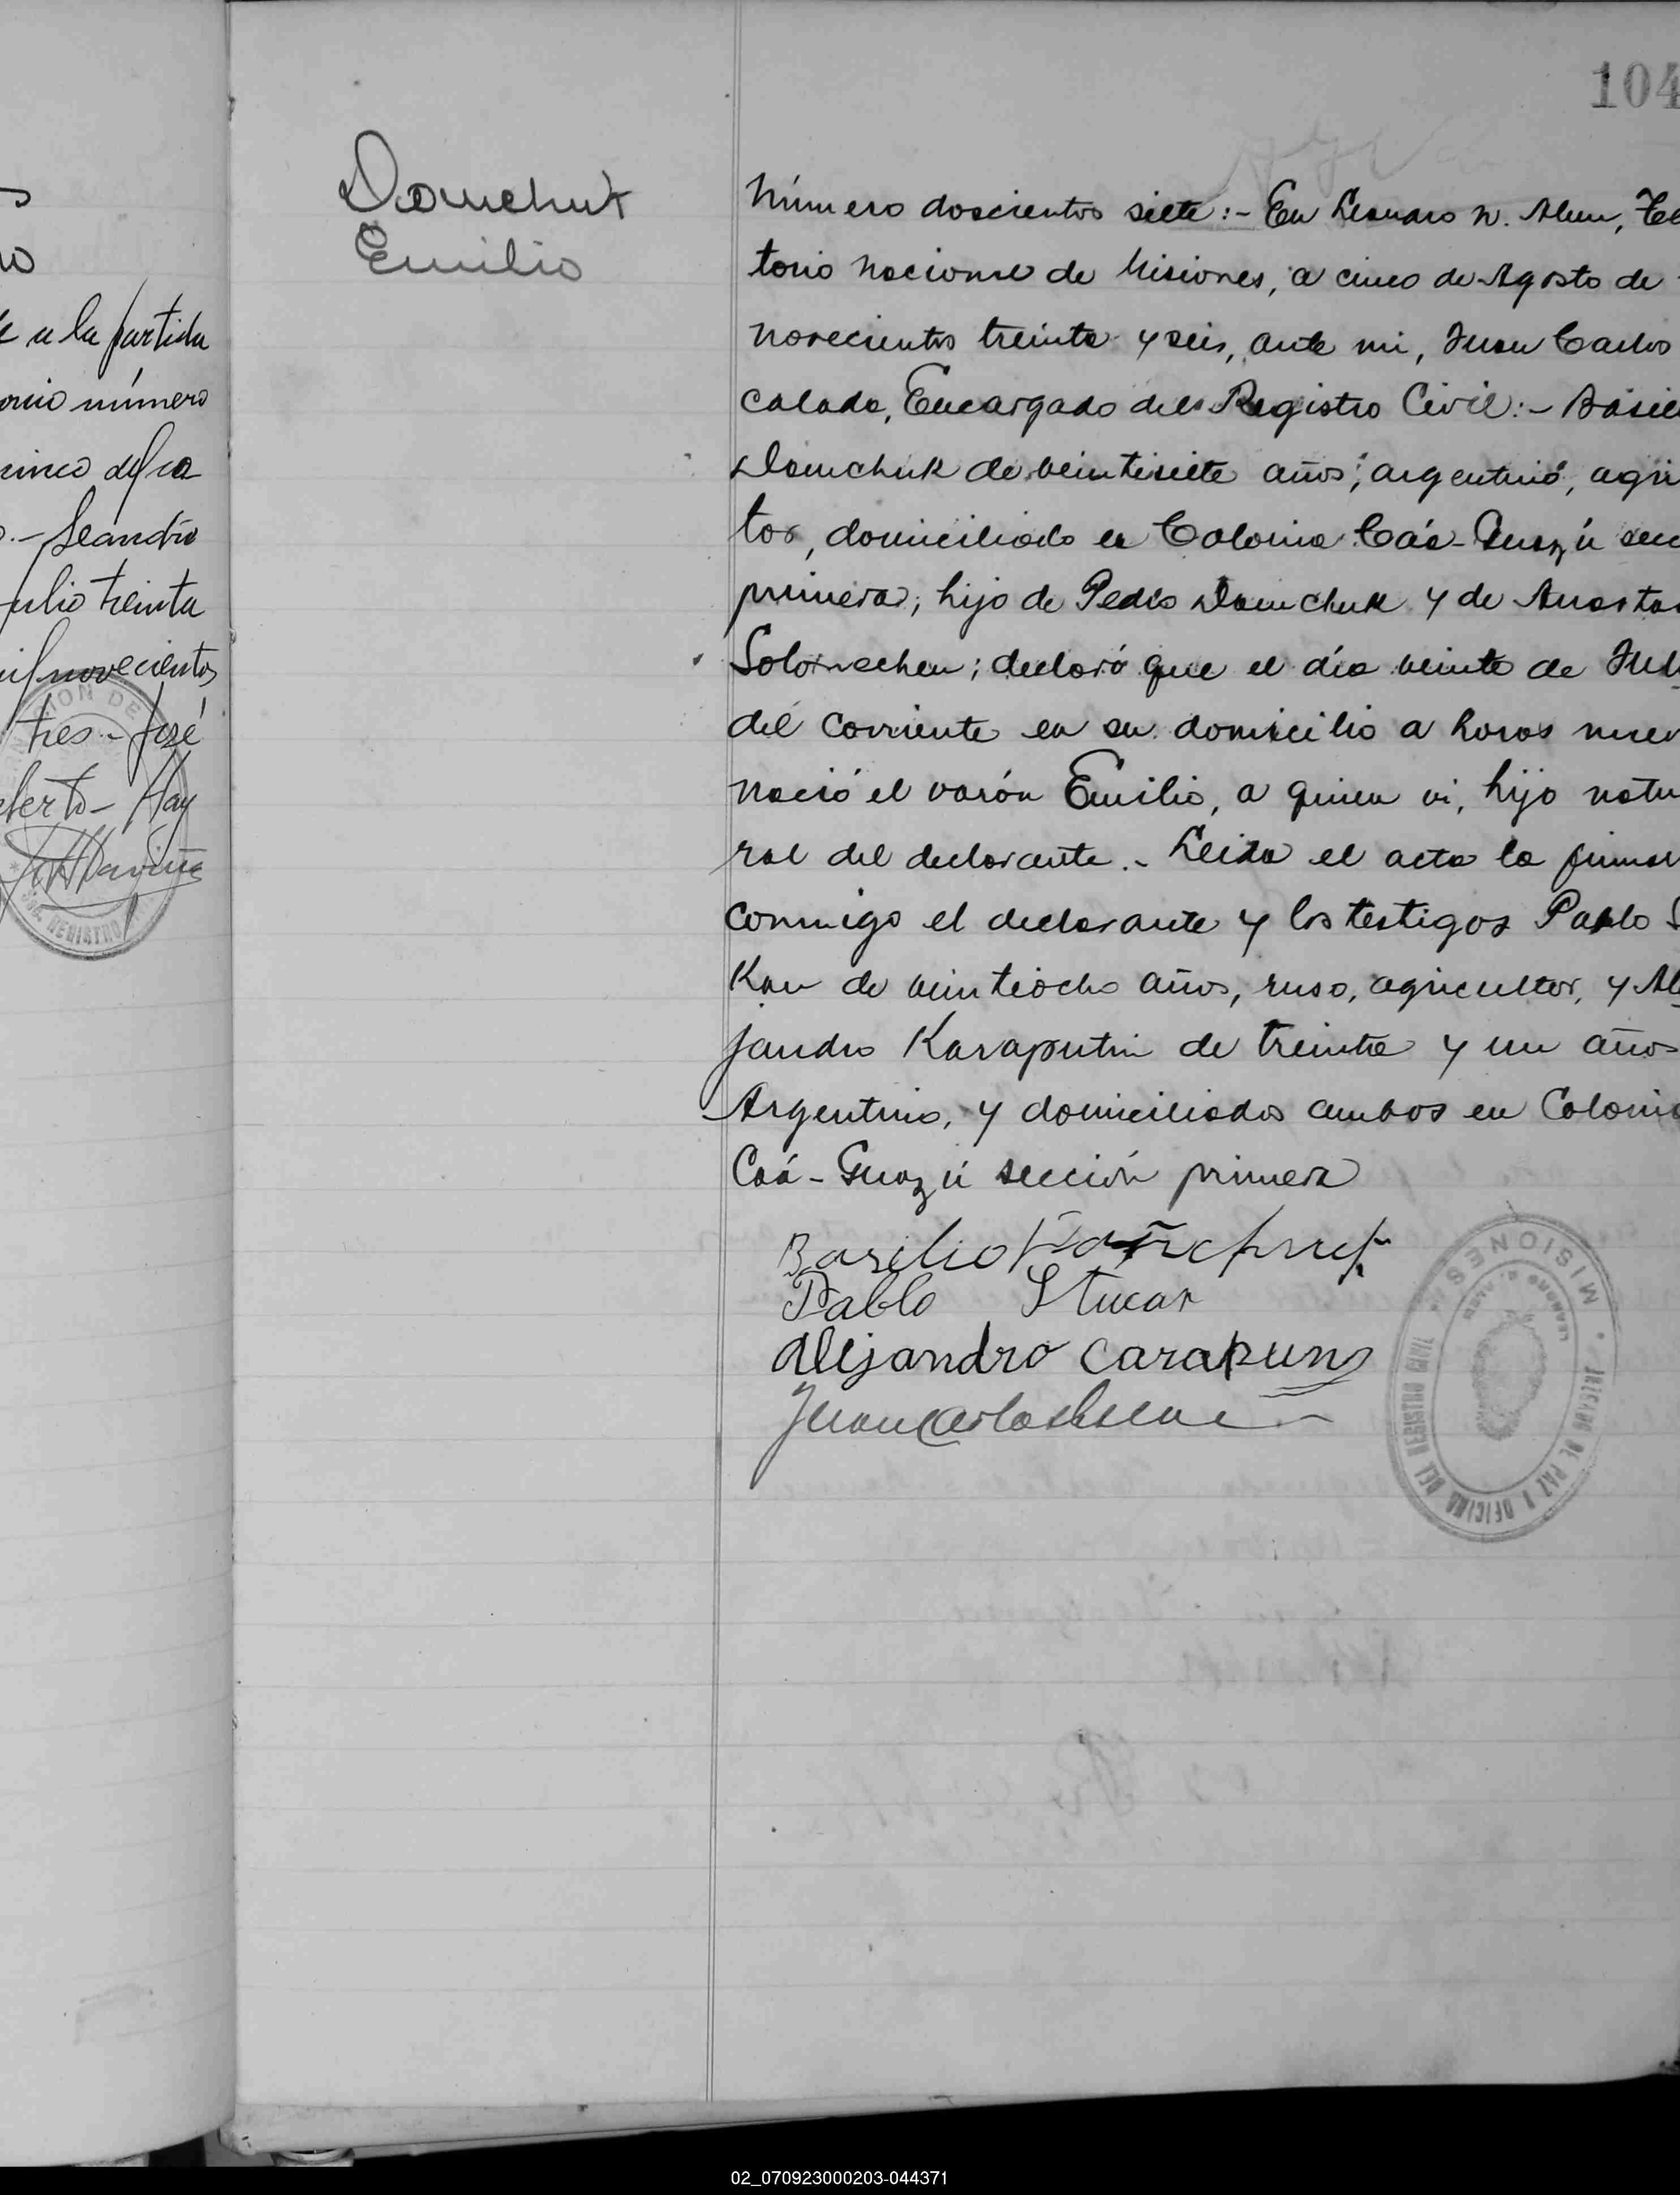 104
Domchuk
Emilio
e a la partida
número
cinco de
Leandro
Julio treinta
novecientos
tres - José
Número doscientos siete:- En Leandro N. Alem, Te
torio Nacional de Misiones, a cinco de Agosto de
novecientos treinta y seis, ante mi, Juan Carlos
calada, Encargado del Registro Civil:- Basil
Domchuk de veintisiete años; argentino, agri
tor, domiciliado en Colonia Caá-Guazú sec
primera; hijo de Pedro Domchuk y de Anasta
declaró que el día veinte de Jul
del corriente en su domicilio a horas nuev
nació el varón Emilio, a quien vi, hijo natu
ral del declarante.- Leida el acta la firmar
conmigo el declarante y los testigos Pablo S
Kan de veintiocho años, ruso, agricultor, y Al
jandro Karaputin de treinta y un años
Argentino, y domiciliados ambos en Colonia
Caá-Guazú sección primera
Basilio
Pablo Stucar
Alejandro Carapun
Juan Carlos
MISIONES
LEANDRO N. ALEM
JUZGADO DE PAZ Y OFICINA DEL REGISTRO CIVIL
02_070923000203-044371